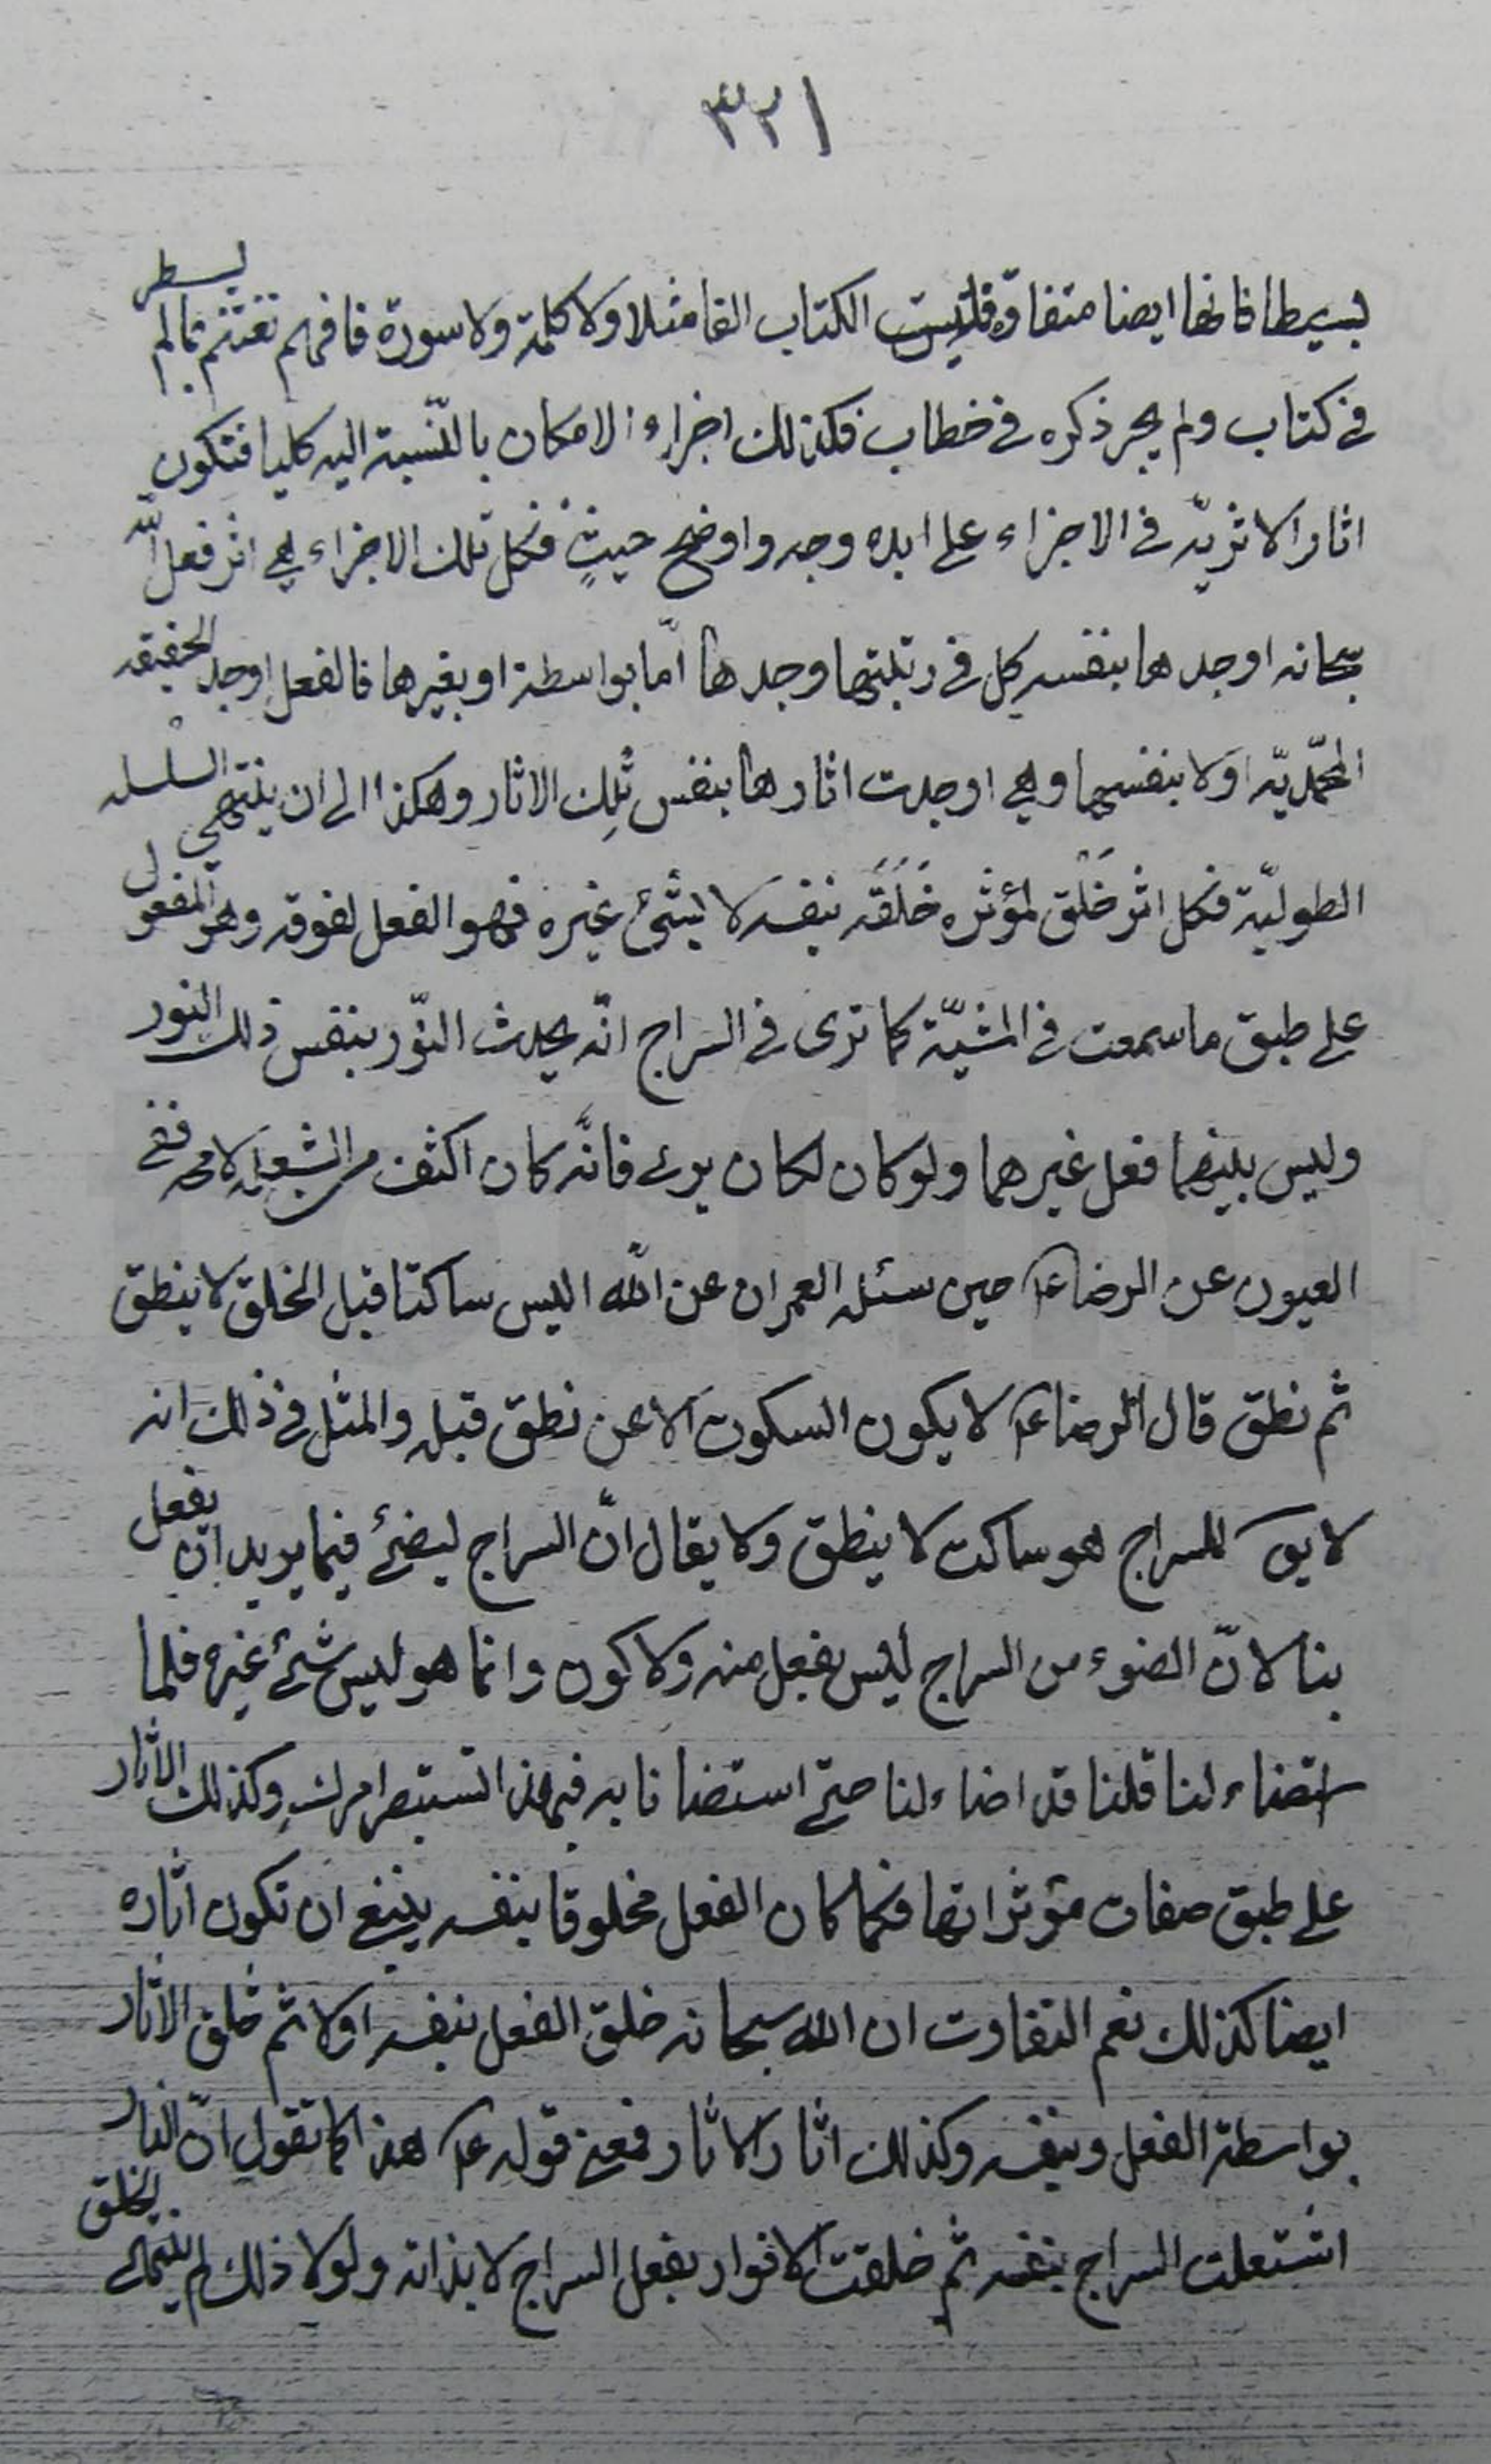 ٣٢١
بسيطا فانها ايضا متفاوة فليست الكتاب الفا مثلا ولا كلمة ولا سورة فافهم تغتنم بما لم يسطر
في كتاب ولم يجر ذكره في خطاب فكذلك اجزاء الامكان بالنّسبة اليه كليا فتكون
اثار الاثريّة في الاجزاء على ابده وجه واوضح حيثٍ فكل تلك الاجزاء هي اثر فعل الله
سبحانه اوجدها بنفسه كل في رتبتها وجدها امّا بواسطة او بغيرها فالفعل اوجد الحقيقه
المحمّديّه اوّلا بنفسها وهي اوجدت اثارها بنفس تلك الاثار وهكذا الى ان ينتهي السلسله
الطوليّة فكل اثر خَلْق لمؤثره خَلَقَه بنفسه لا بشئ غيره فهو الفعل لفوقه وهو المفعول
على طبق ما سمعت في المشيّة كما ترى في السراج انّه يحدث النّور بنفس ذلك النور
وليس بينهما فعل غيرهما ولو كان لكان يرى فانّه كان اكثف من الشعله لا محه ففى
العيون عن الرضا ع حين سئله العمران عن الله اليس ساكتا قبل الخلق لا ينطق
ثم نطق قال الرضا ع لا يكون السكوت الا عن نطق قبله والمثل في ذلك انه
لا يق للسراج هو ساكت لا ينطق ولا يقال انّ السراج ليضئ فيما يريد ان يفعل
بنا لانّ الضوء من السراج ليس بفعل منه ولا كون وانما هو ليس شئ غيره فلما
استضاء لنا قلنا قد اضاء لنا حتى استضانا به فبهذا تستبصر امرك وكذلك الاثار
على طبق صفات مؤثراتها فكما كان الفعل مخلوقا بنفسه ينبغي ان تكون اثاره
ايضا كذلك نعم التفاوت ان الله سبحانه خلق الفعل بنفسه اولا ثم خلق الاثار
بواسطة الفعل وبنفسه وكذلك اثار الاثار فمعنى قوله ع هذا كما تقول انّ النار
اشتعلت السراج بنفسه ثم خلقت الانوار بفعل السراج لا بذاته ولولا ذلك لم الخلق